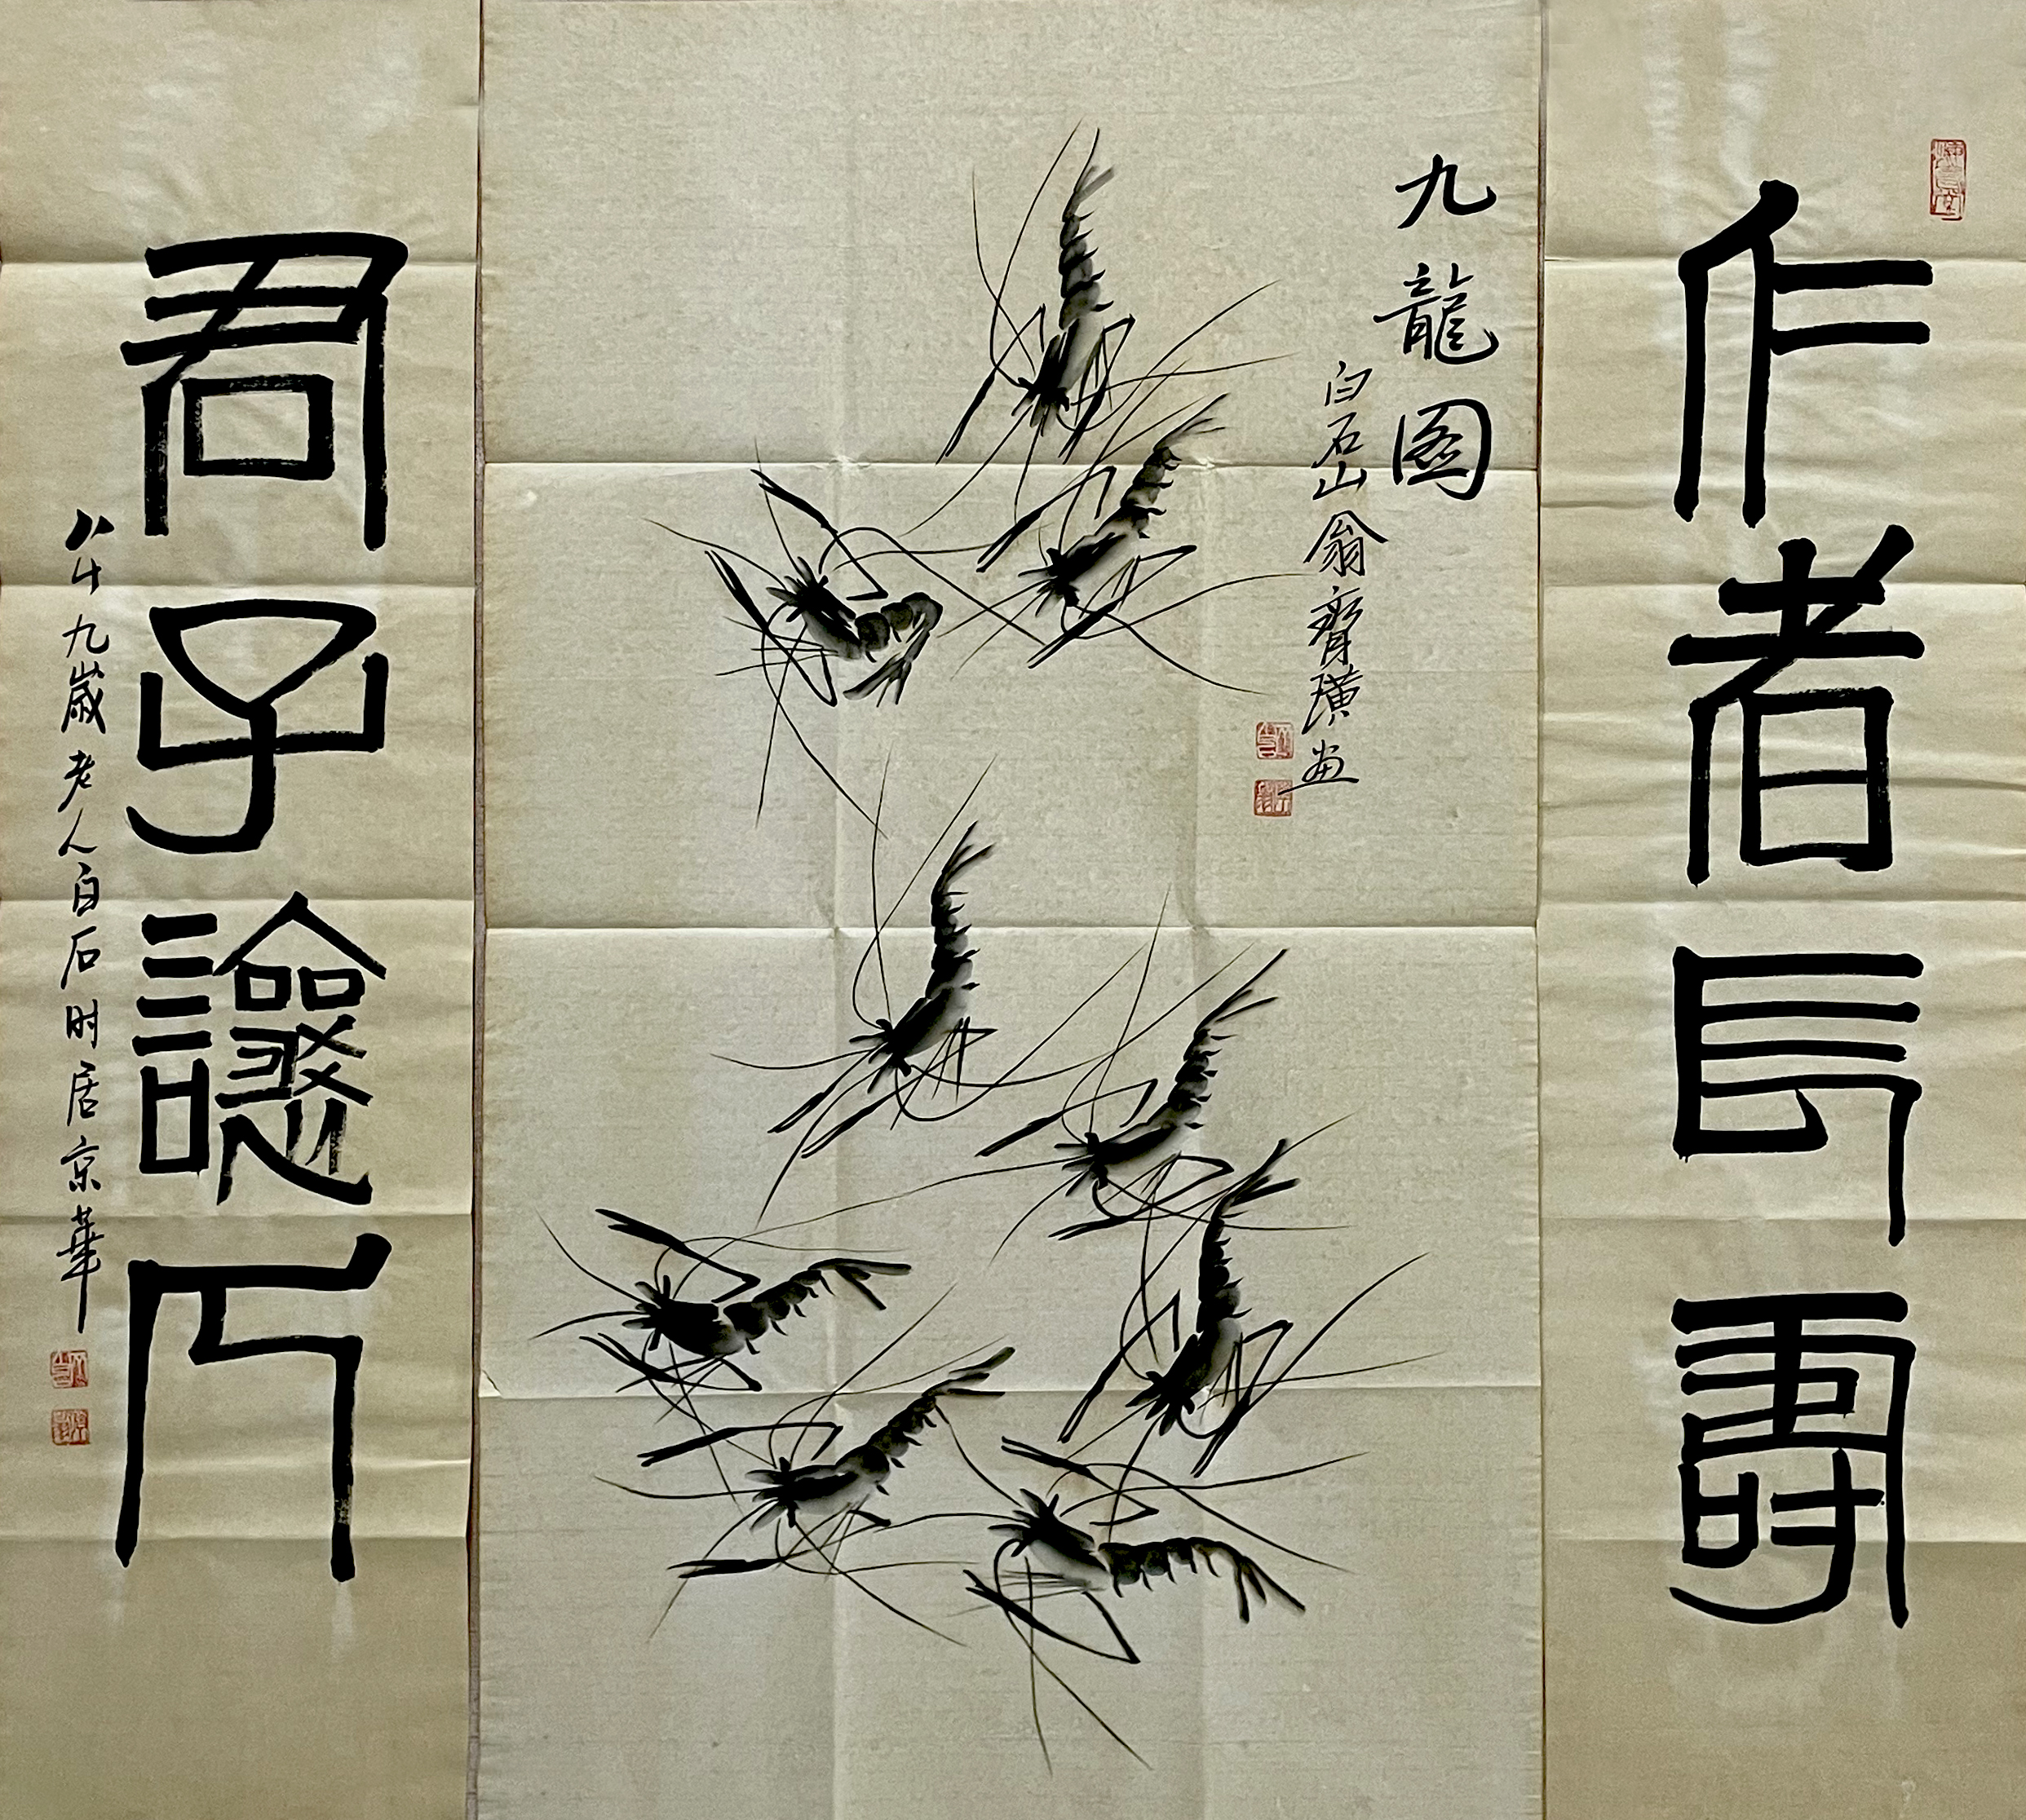 仁者長壽
九龍图
白石山翁齊璜画
君子讓
八十九歲老人白石时居京華